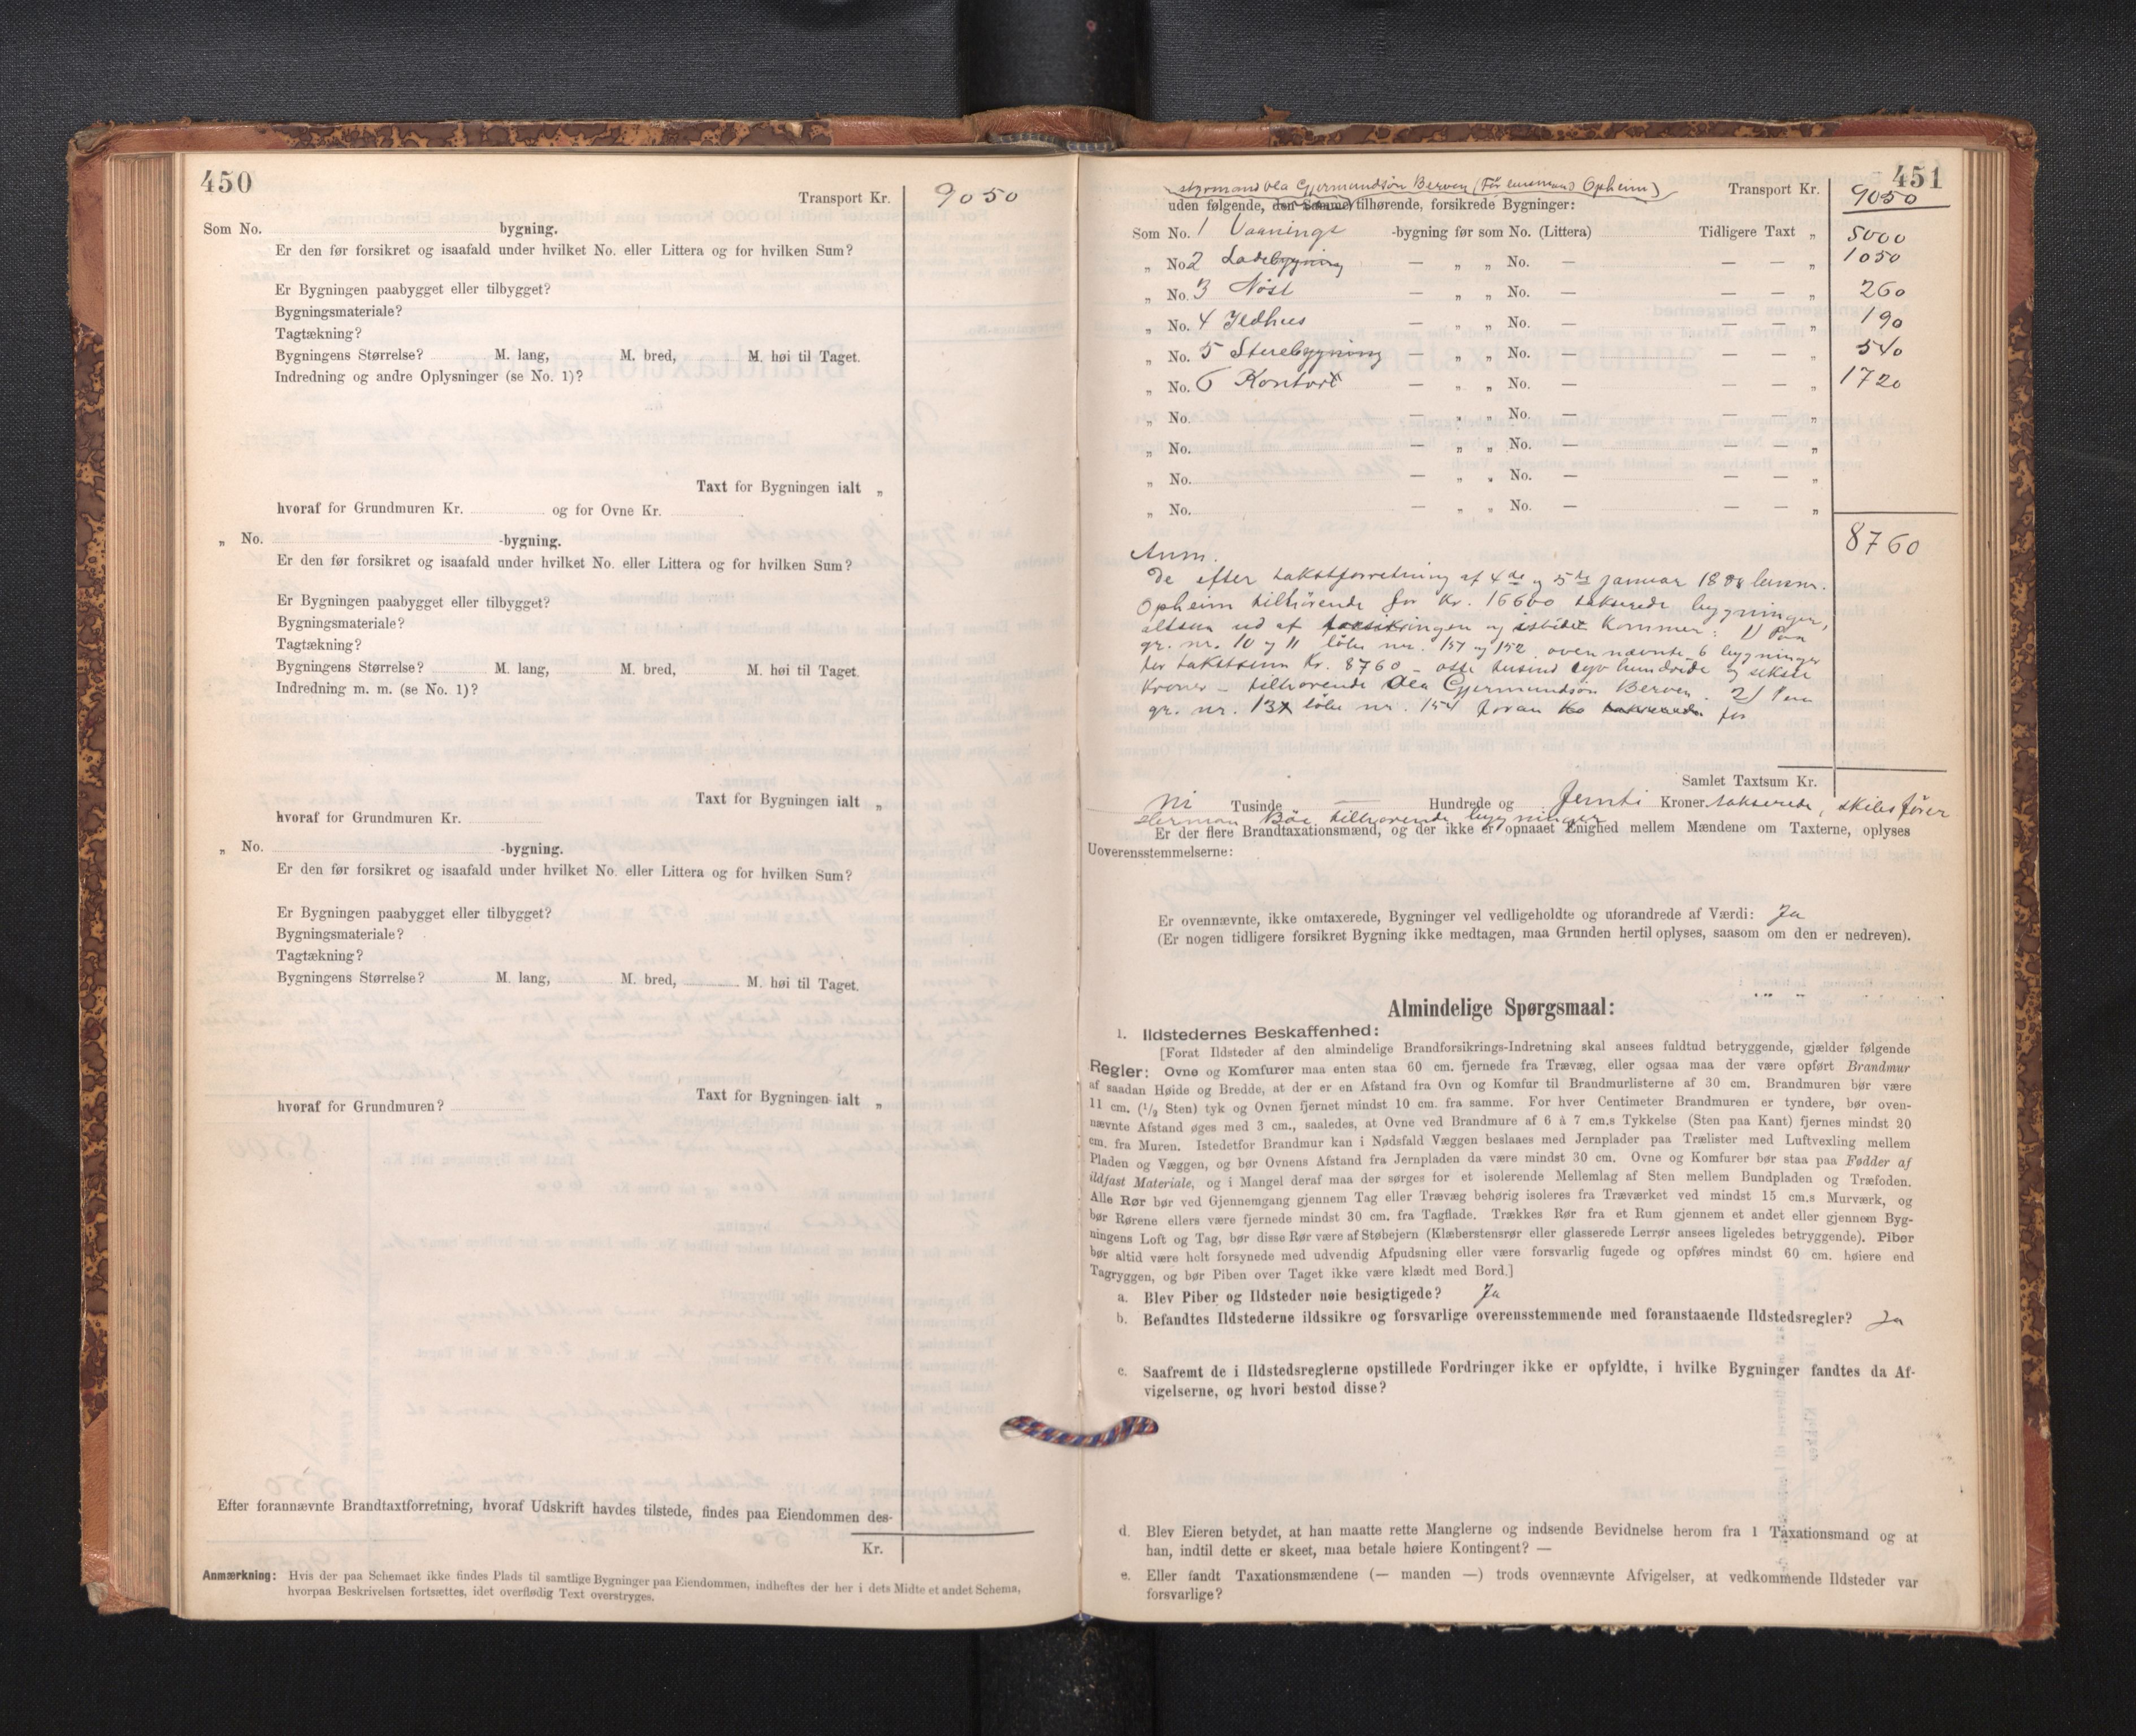 450
Transport Kr. 9050
Som No. bygning.
Er den før forsikret og isaafald under hvilket No. eller Littera og for hvilken Sum?
Er Bygningen paabygget eller tilbygget?
Bygningsmateriale?
Tagtækning?
Bygningens Størrelse? M. lang, M. bred, M. høi til Taget.
Indredning og andre Oplysninger (se No. 1)?
Taxt for Bygningen ialt „
hvoraf for Grundmuren Kr. og for Ovne Kr.
„ No. -bygning.
Er den før forsikret og isaafald under hvilket No. eller Littera og for hvilken Sum?
Er Bygningen paabygget eller tilbygget?
Bygningsmateriale?
Tagtækning?
Bygningens Størrelse? M. lang, M. bred, M. høi til Taget.
Indredning m. m. (se No. 1)?
Taxt for Bygningen ialt „
hvoraf for Grundmuren Kr.
„ No. -bygning.
Er den før forsikret og isaafald under hvilket No. eller Littera og for hvilken Sum?
Er Bygningen paabygget eller tilbygget?
Bygningsmateriale?
Tagtækning?
Bygningens Størrelse? M. lang, M. bred, M. høi til Taget.
Taxt for Bygningen ialt „
hvoraf for Grundmuren?
Efter forannævnte Brandtaxtforretning, hvoraf Udskrift havdes tilstede, findes paa Eiendommen des-
Kr.
Anmærkning: Hvis der paa Schemaet ikke findes Plads til samtlige Bygninger paa Eiendommen, indheftes der her i dets Midte et andet Schema,
hvorpaa Beskrivelsen fortsættes, idet overflødig Text overstryges.
451
styrmand Ola Gjermundsøn Berven (Før lensmand Opheim)
Transport Kr. 9050
uden følgende, den Samme tilhørende, forsikrede Bygninger:
Som No. 1 Vaanings -bygning før som No. (Littera) Tidligere Taxt „ 5000
„ No. 2 Ladebygning — „ „ No. — — — „ 1050
„ No. 3 Nøst — „ „ No. — — — „ 260
„ No. 4 Ildhus — „ „ No. — — — „ 190
„ No. 5 Sturebygning — „ „ No. — — — „ 540
„ No. 6 Kontor — „ „ No. — — — „ 1720
„ No. — „ „ No. — — — „
„ No. — „ „ No. — — — „
„ No. — „ „ No. — — — „
„ No. — „ „ No. — — — „
8760
Anm.
De efter takstforretning af 4de og 5te januar lensm.
Opheim tilhørende for Kr. 16600 takserede bygninger,
altsaa ud af forsikringen og kommer: 1) Paa
gr. nr. 10 og 11 løbe nr. 151 og 152 ovennævnte 6 bygninger
for takstsum Kr. 8760 – otte tusind syv hundrede og seksti
Kroner – tilhørende Ola Gjermundsøn Berven. 2) Paa
gr. nr. 13 løbe nr. 154 foran for
Samlet Taxtsum Kr.
Ni Tusinde — Hundrede og femti Kroner takserede, skibsfører
Herman Bøe tilhørende bygninger
Er der flere Brandtaxationsmænd, og der ikke er opnaaet Enighed mellem Mændene om Taxterne, oplyses
Uoverensstemmelserne:
Er ovennævnte, ikke omtaxerede, Bygninger vel vedligeholdte og uforandrede af Værdi: Ja
(Er nogen tidligere forsikret Bygning ikke medtagen, maa Grunden hertil oplyses, saasom om den er nedreven).
Almindelige Spørgsmaal:
1. Ildstedernes Beskaffenhed:
[Forat Ildsteder af den almindelige Brandforsikrings-Indretning skal ansees fuldtud betryggende, gjælder følgende
Regler: Ovne og Komfurer maa enten staa 60 cm. fjernede fra Trævæg, eller ogsaa maa der være opført Brandmur
af saadan Høide og Bredde, at der er en Afstand fra Ovn og Komfur til Brandmurlisterne af 30 cm. Brandmuren bør være
11 cm. (1/2 Sten) tyk og Ovnen fjernet mindst 10 cm. fra samme. For hver Centimeter Brandmuren er tyndere, bør oven-
nævnte Afstand øges med 3 cm., saaledes, at Ovne ved Brandmure af 6 à 7 cm.s Tykkelse (Sten paa Kant) fjernes mindst 20
cm. fra Muren. Istedetfor Brandmur kan i Nødsfald Væggen beslaaes med Jernplader paa Trælister med Luftvexling mellem
Pladen og Væggen, og bør Ovnens Afstand fra Jernpladen da være mindst 30 cm. Ovne og Komfurer bør staa paa Fødder af
ildfast Materiale, og i Mangel deraf maa der sørges for et isolerende Mellemlag af Sten mellem Bundpladen og Træfoden.
Alle Rør bør ved Gjennemgang gjennem Tag eller Trævæg behørig isoleres fra Træværket ved mindst 15 cm.s Murværk, og
bør Rørene ellers være fjernede mindst 30 cm. fra Tagflade. Trækkes Rør fra et Rum gjennem et andet eller gjennem Byg-
ningens Loft og Tag, bør disse Rør være af Støbejern (Klæberstensrør eller glasserede Lerrør ansees ligeledes betryggende). Piber
bør altid være helt forsynede med udvendig Afpudsning eller være forsvarlig fugede og opføres mindst 60 cm. høiere end
Tagryggen, og bør Piben over Taget ikke være klædt med Bord.]
a. Blev Piber og Ildsteder nøie besigtigede? Ja
b. Befandtes Ildstederne ildssikre og forsvarlige overensstemmende med foranstaaende Ildstedsregler? Ja
c. Saafremt de i Ildstedsreglerne opstillede Fordringer ikke er opfyldte, i hvilke Bygninger fandtes da Af-
vigelserne, og hvori bestod disse?
d. Blev Eieren betydet, at han maatte rette Manglerne og indsende Bevidnelse herom fra 1 Taxationsmand og at
han, indtil dette er skeet, maa betale høiere Kontingent? —
e. Eller fandt Taxationsmændene (— manden —) trods ovennævnte Afvigelser, at vedkommende Ildsteder var
forsvarlige?